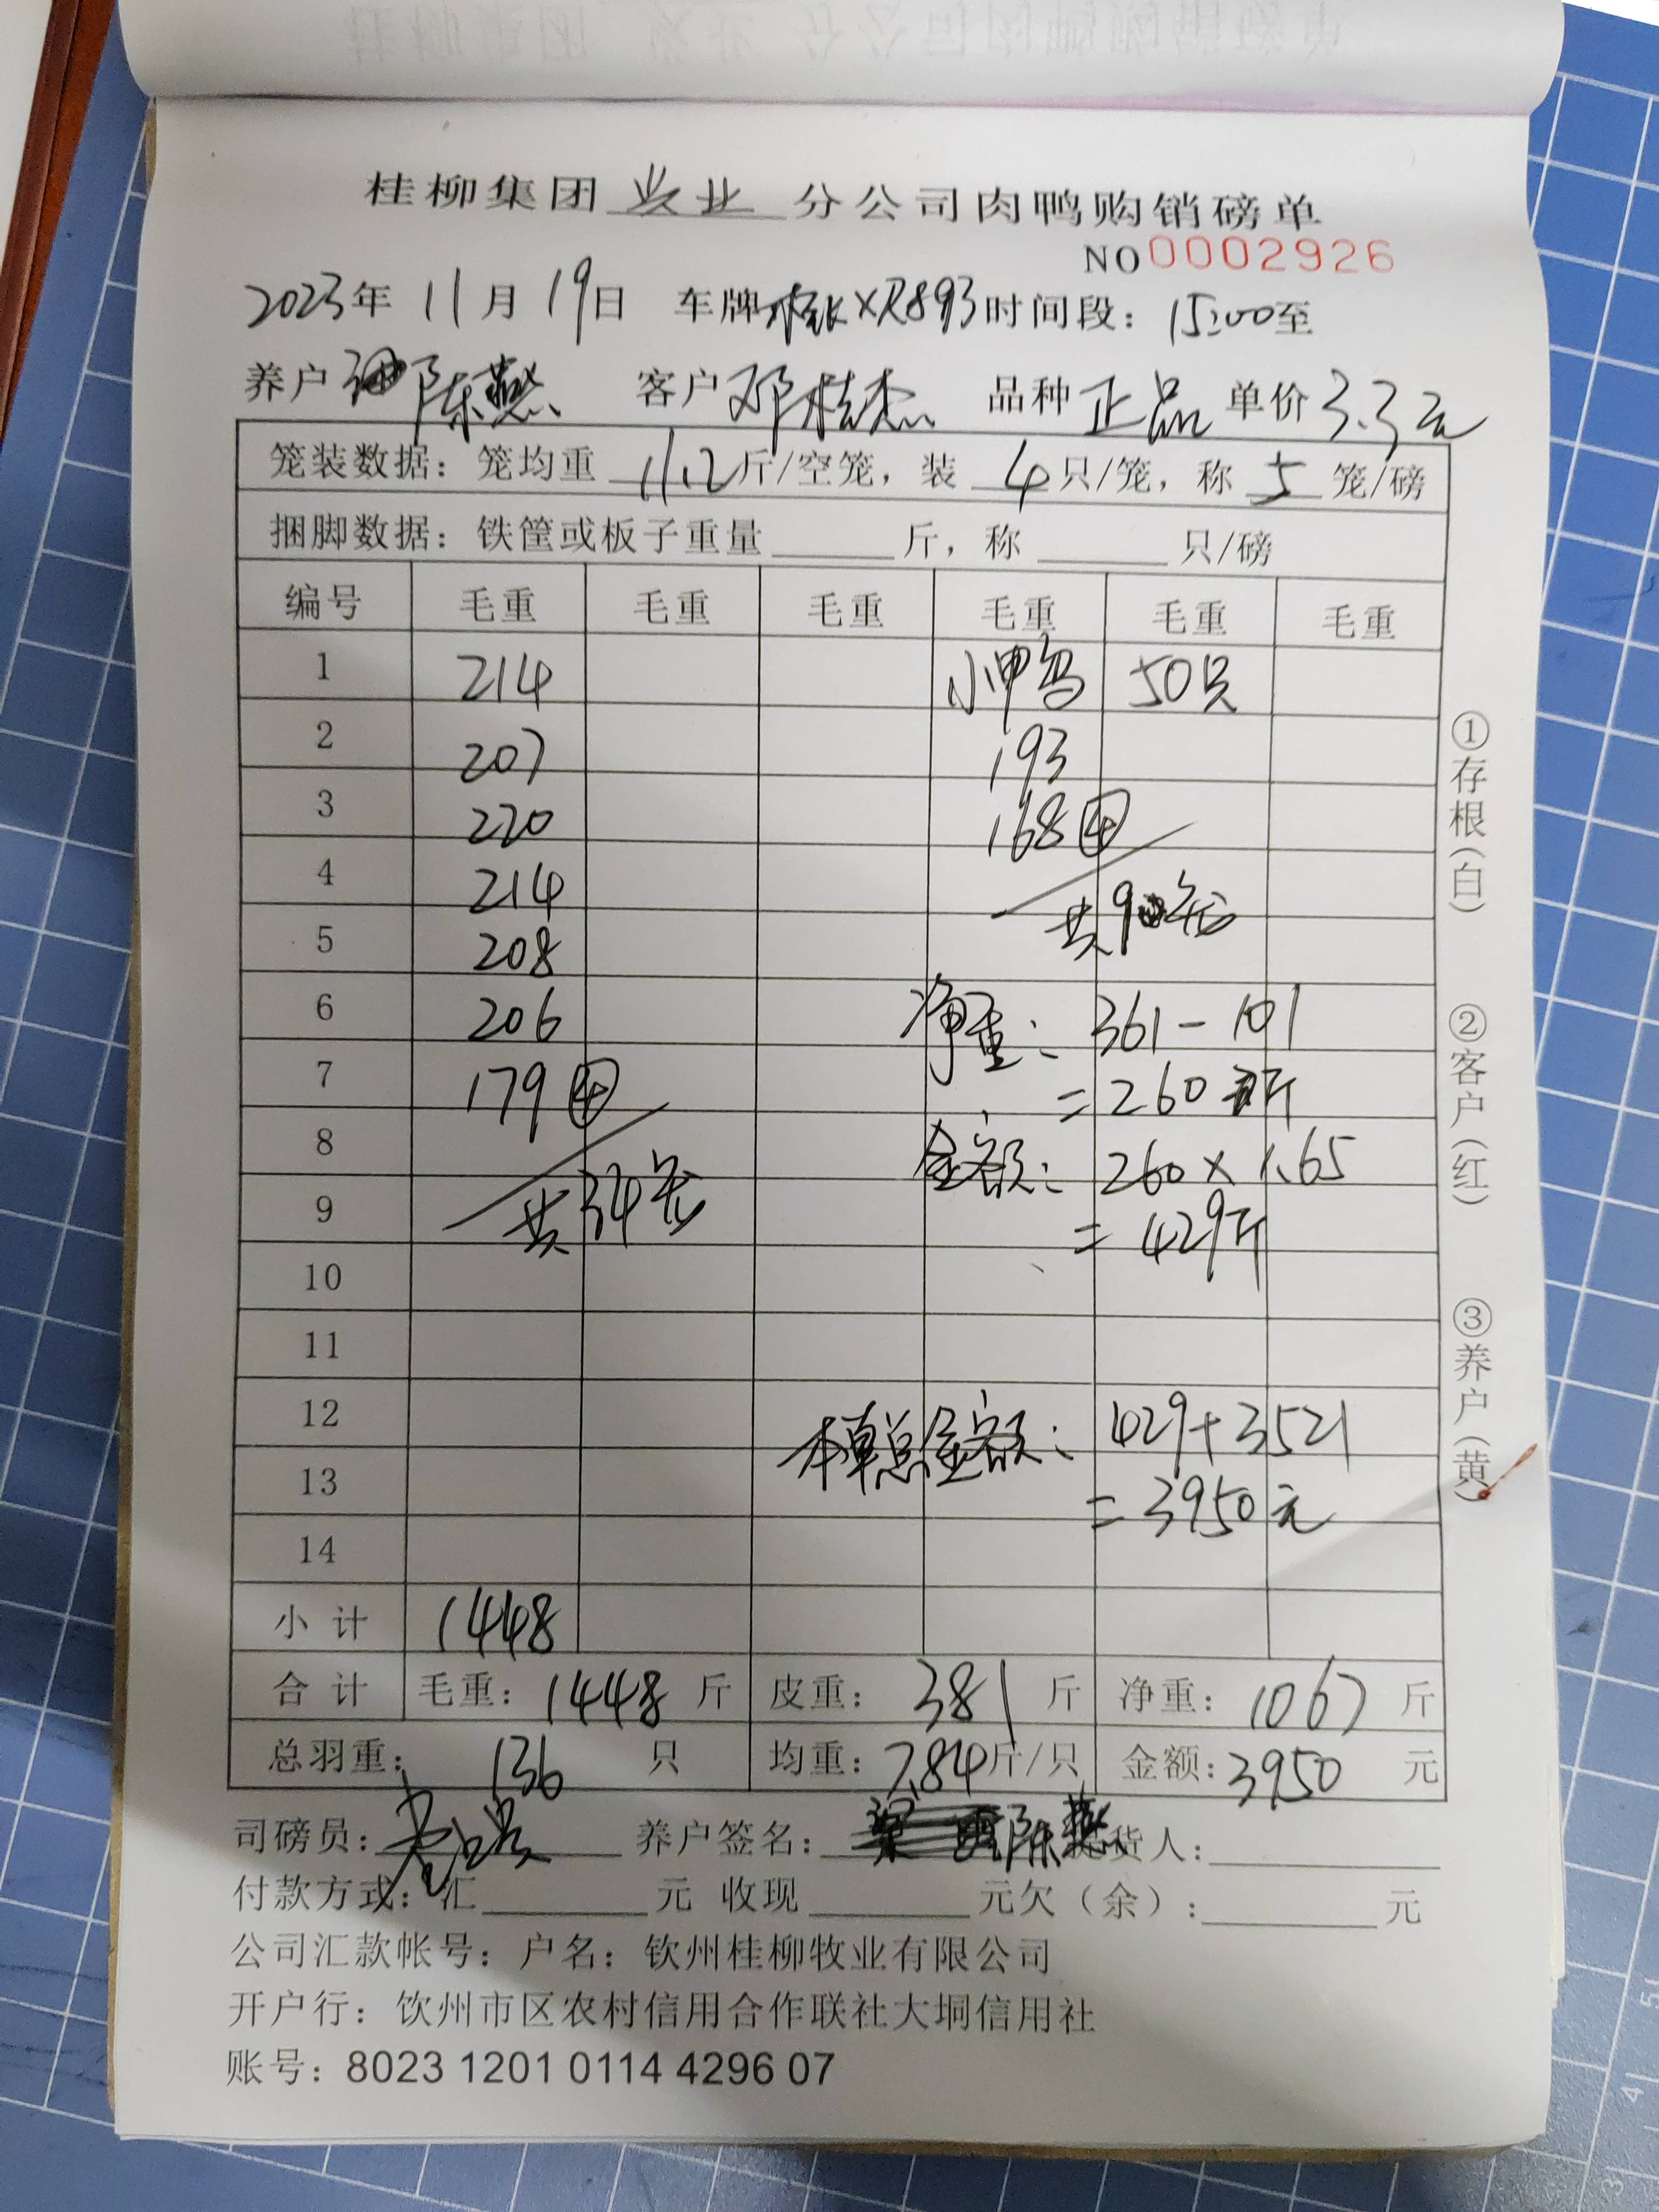 桂柳集团 兴业 分公司肉鸭购销磅单
NO 0002926
2023年 11月 19日 车牌 XR893 时间段: 15:00至
养户 陈燕 客户 邓桂杰 品种 正品 单价 3.3元
笼装数据: 笼均重 11.2 斤/空笼, 装 4 只/笼, 称 5 笼/磅
捆脚数据: 铁筐或板子重量 斤, 称 只/磅
编号 毛重 毛重 毛重 毛重 毛重 毛重
1 214 小甲鸟 50只
2 207 193
3 220 168 ④
4 214
共9笼
5 208
6 206 净重: 361-101
7 179 ④ =260斤
8 金额: 260×1.65
共34笼
9 =429斤
10
11
12 本单总金额: 429+3521
13 =3950元
14
小计 1448
合计 毛重: 1448 斤 皮重: 381 斤 净重: 1067 斤
总羽重: 136 只 均重: 7.84 斤/只 金额: 3950 元
司磅员: 养户签名: 陈燕 货人:
付款方式: 汇 元 收现 元欠(余): 元
公司汇款帐号: 户名: 钦州桂柳牧业有限公司
开户行: 饮州市区农村信用合作联社大垌信用社
账号: 8023 1201 0114 4296 07
①存根(白)
②客户(红)
③养户(黄)